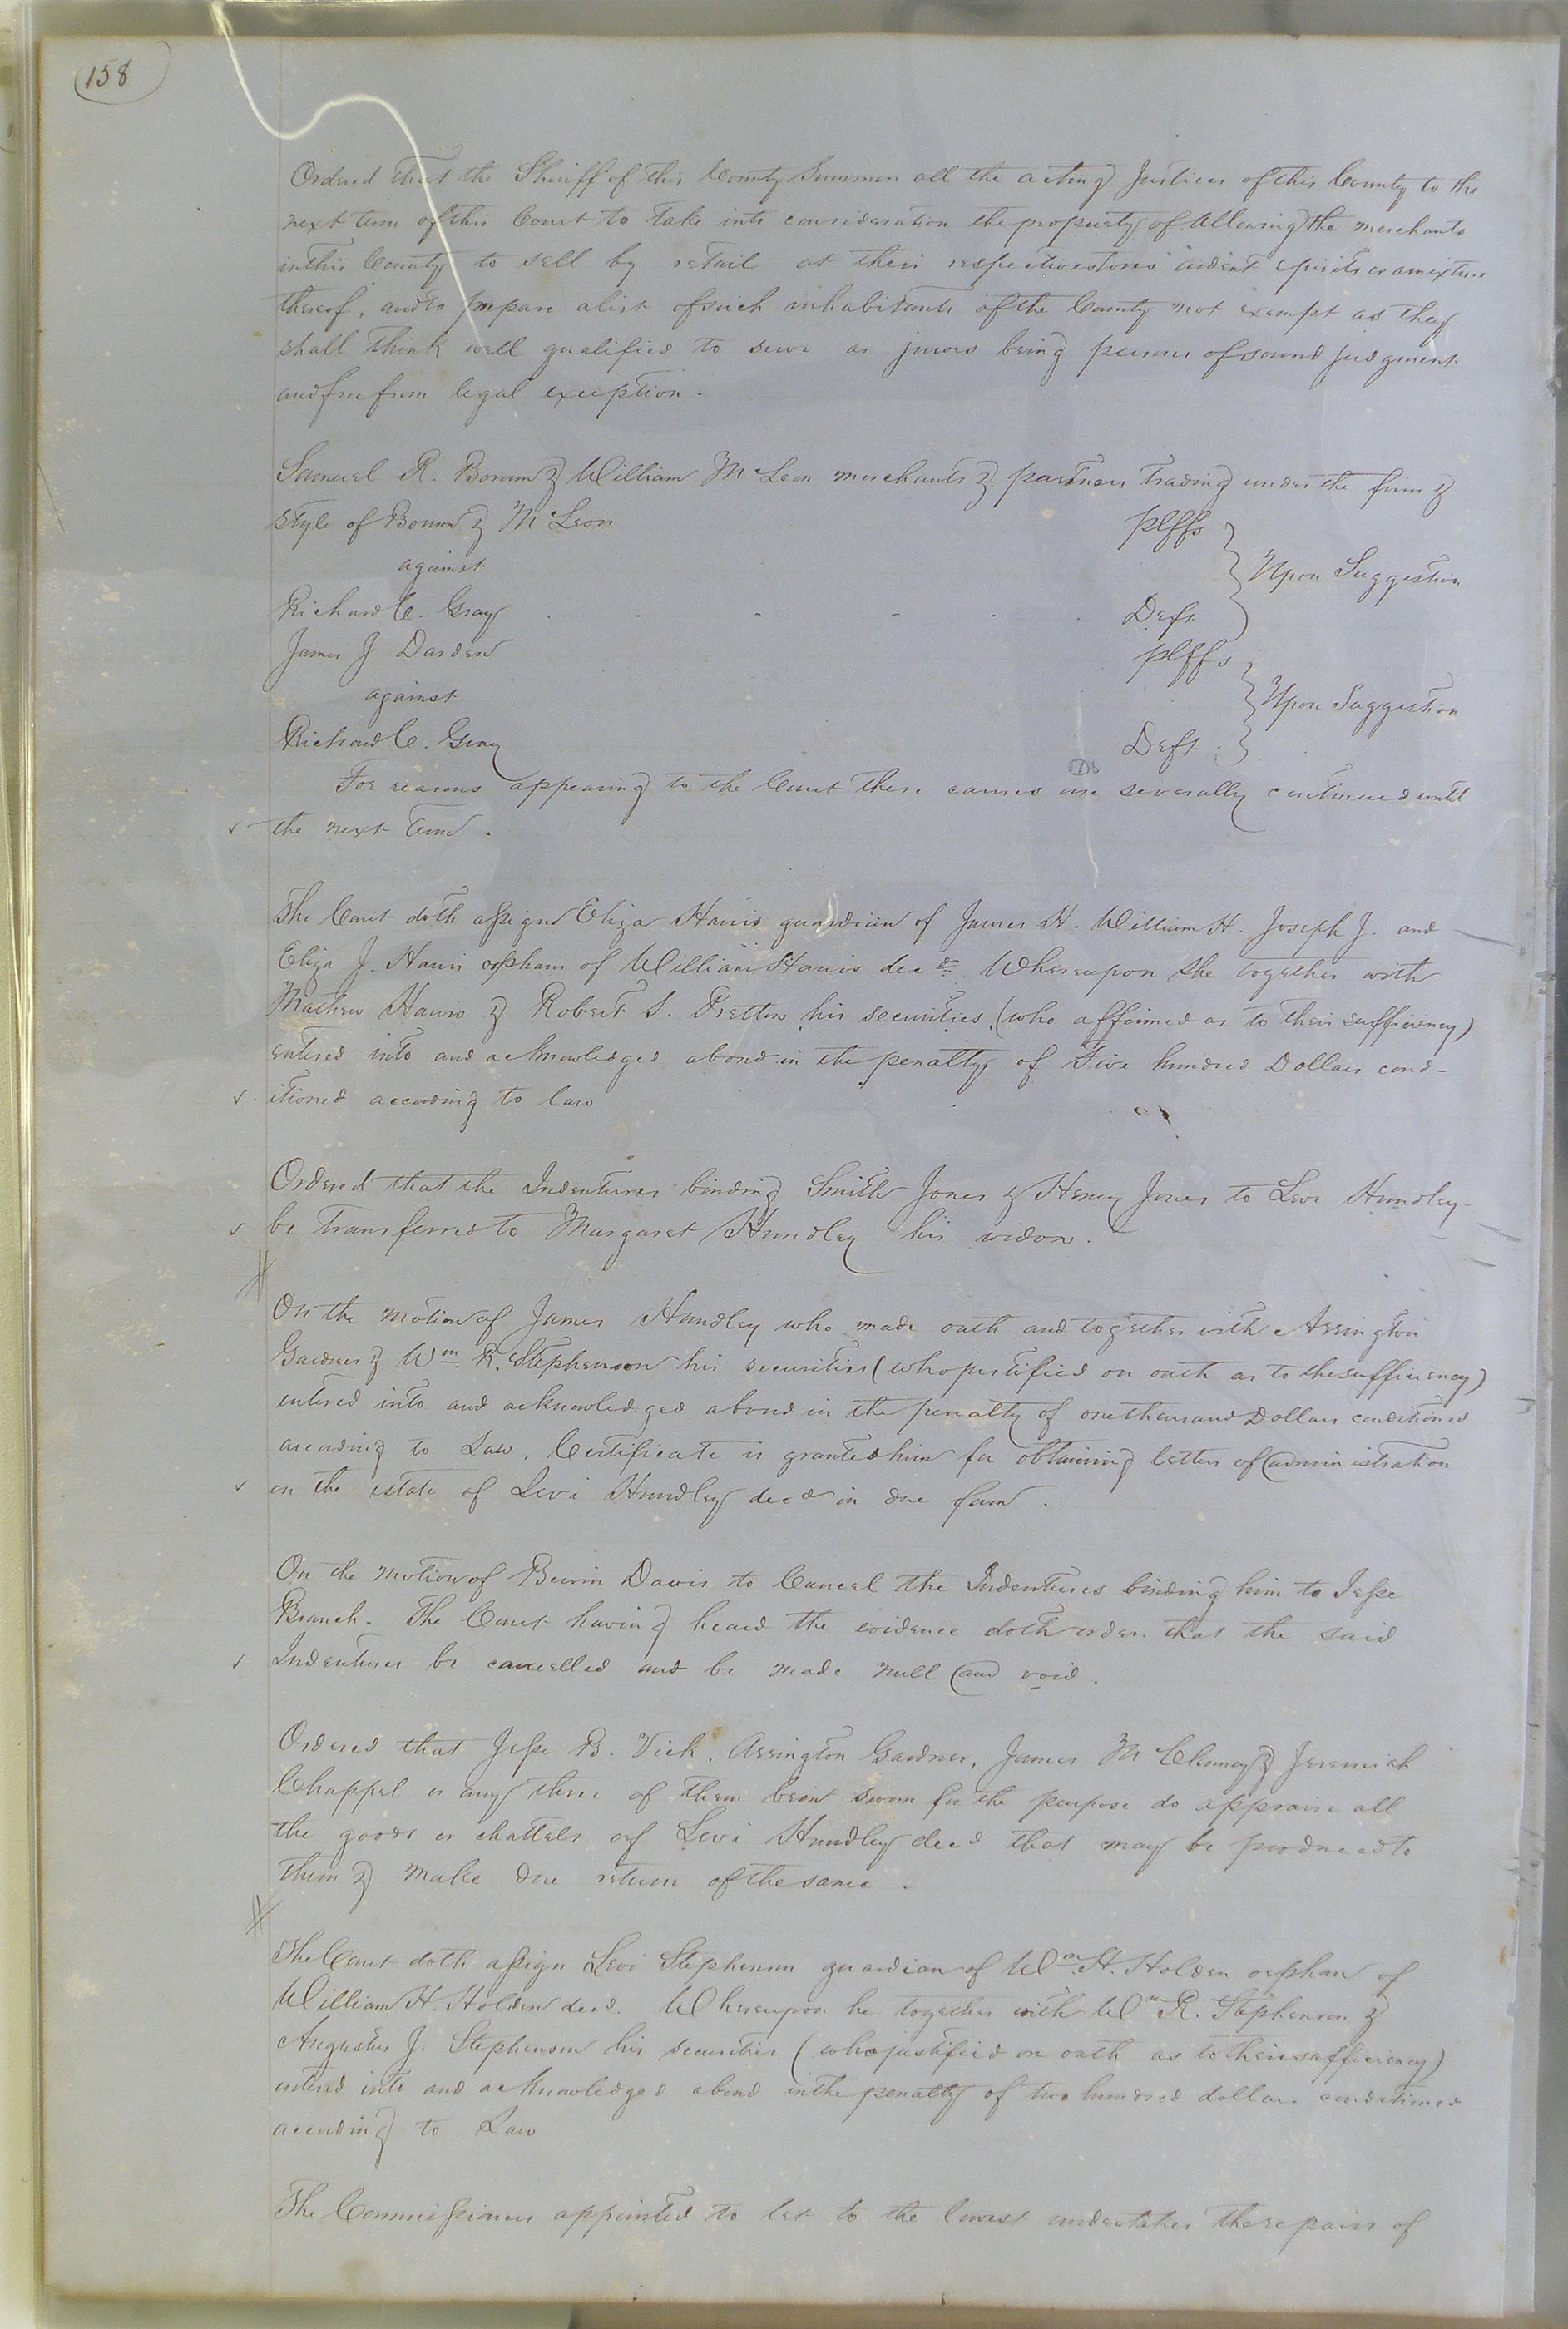 158
Ordered that the Sheriff of this County Summon all the acting Justices of this County to the
next term of this Court to take into consideration the propriety of allowing the merchants
in this County to sell by retail at their respective stores ardent spirits or a mixture
thereof, and to prepare a list of such inhabitants of the County not exempt as they
shall think well qualified to serve as jurors being persons of sound judgment
and free from legal exception.
Samuel R. Borum & William McLeon merchants & partners trading under the firm &
style of Borum & McLeon plffs
against Upon Suggestion
Richard C. Gray Deft
James J Darden plffs
against Upon Suggestion
Richard C. Gray Deft
For reasons appearing to the Court these causes are severally continued until
the next term.
The Court doth assign Eliza Harris guardian of James H. William H. Joseph J. and
Eliza J. Harris orphans of William Harris decd. Whereupon she together with
Mathew Harris & Robert S. his securities, (who affirmed as to their sufficiency)
entered into and acknowledged a bond in the penalty of Five hundred Dollars cond-
itioned according to law
Ordered that the Indentures binding Smith Jones & Henry Jones to Levi Hundley
be transferred to Margaret Hundley his widow.
On the motion of James Hundley who made oath and together with Arrington
Gardner & Wm. R. Stephenson his securities (who justified on oath as to the sufficiency)
entered into and acknowledged a bond in the penalty of one thousand Dollars conditioned
according to Law. Certificate is granted him for obtaining letters of administration
on the estate of Levi Hundley decd in due form.
On the motion of Davis to Cancel the Indentures binding him to Jesse
Branch. The Court having heard the evidence doth order that the said
Indentures be cancelled and be made null and void.
Ordered that Jesse B. Vick, Arrington Gardner, James M & Jeremiah
Chappel or any three of them bein sworn for the purpose do appraise all
the goods or chattels of Levi Hundley decd that may be produced to
them & make due return of the same.
The Court doth assign Levi Stephenson guardian of Wm. H. Holden orphan of
William H. Holden decd. Whereupon he together with Wm R. Stephenson &
Augustus J. Stephenson his securities (who justified on oath as to their sufficiency)
entered into and acknowledged a bond in the penalty of two hundred dollars conditioned
according to Law
The Commissioners appointed to let to the lowest undertaker the repairs of